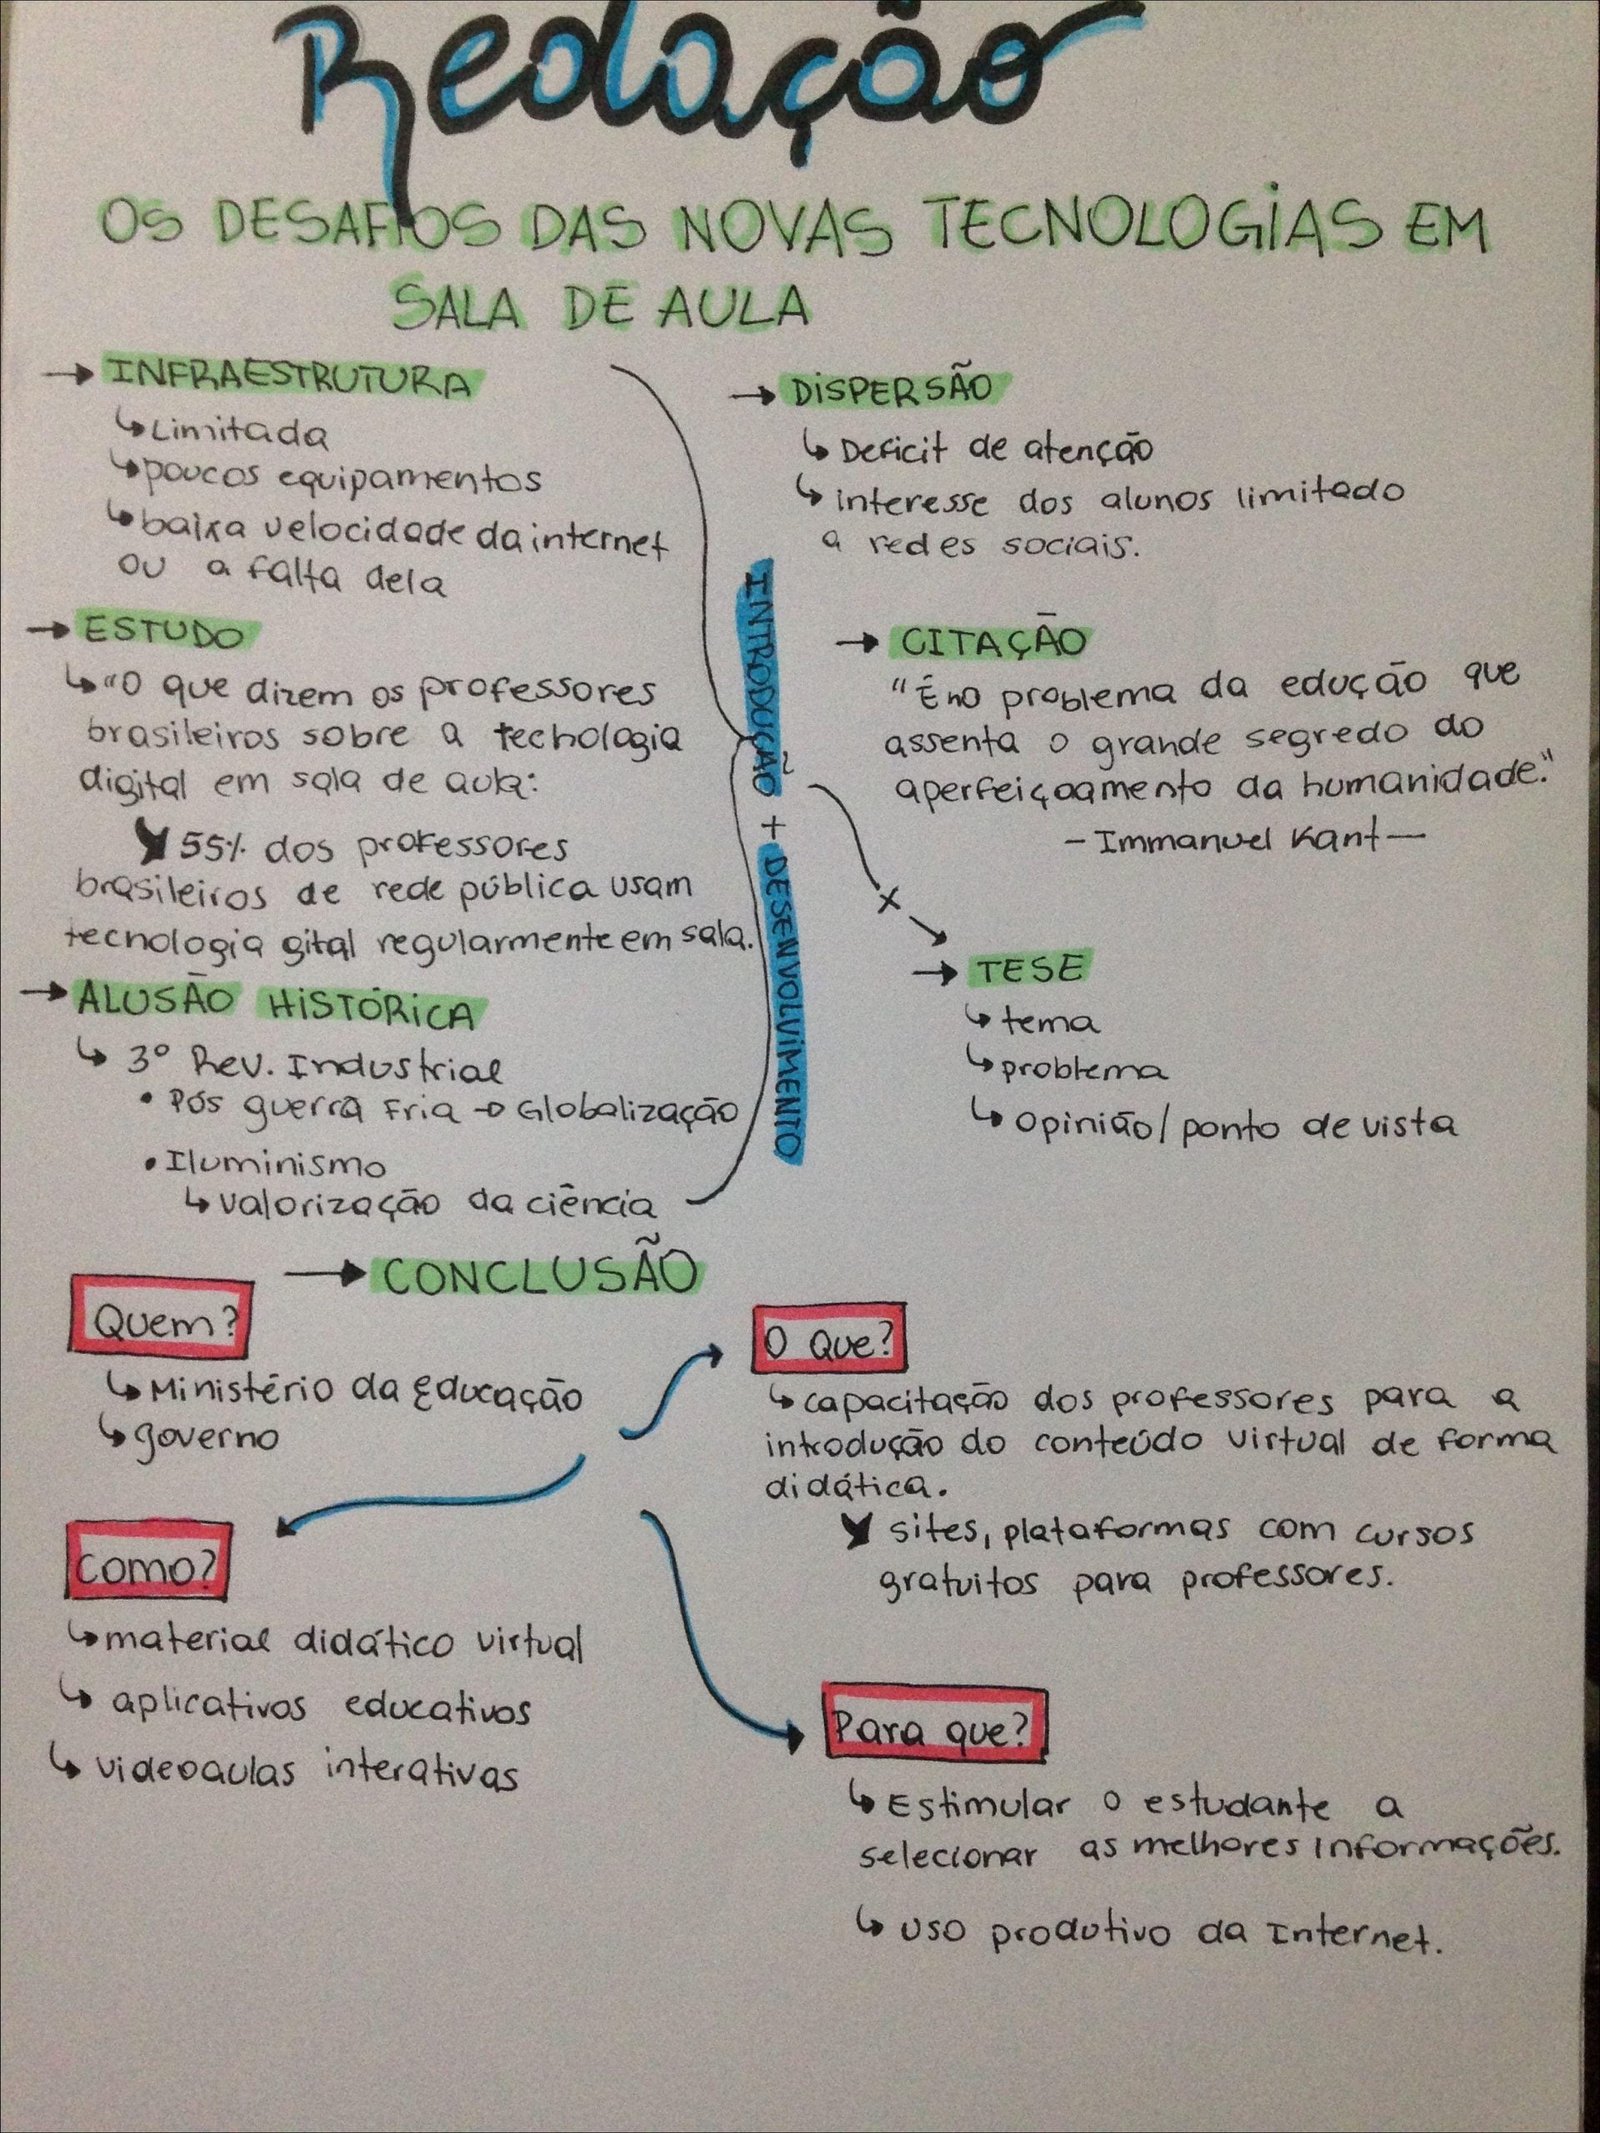 Redação
OS DESAFIOS DAS NOVAS TECNOLOGIAS EM
SALA DE AULA
→ INFRAESTRUTURA
↳ Limitada
↳ poucos equipamentos
↳ baixa velocidade da internet
ou a falta dela
→ ESTUDO
↳ "O que dizem os professores
brasileiros sobre a tecnologia
digital em sala de aula:
55% dos professores
brasileiros de rede pública usam
tecnologia gital regularmente em sala.
→ ALUSÃO HISTÓRICA
↳ 3° Rev. Industrial
• Pós guerra Fria → Globalização
• Iluminismo
↳ valorização da ciência
INTRODUÇÃO + DESENVOLVIMENTO
→ DISPERSÃO
↳ Deficit de atenção
↳ interesse dos alunos limitado
a redes sociais.
→ CITAÇÃO
"É no problema da edução que
assenta o grande segredo do
aperfeiçoamento da humanidade."
- Immanuel Kant -
x
→ TESE
↳ tema
↳ problema
↳ opinião/ponto de vista
→ CONCLUSÃO
Quem?
↳ Ministério da Educação
↳ governo
O que?
↳ capacitação dos professores para a
introdução do conteúdo virtual de forma
didática.
sites, plataformas com cursos
gratuitos para professores.
como?
↳ material didático virtual
↳ aplicativos educativos
↳ videoaulas interativas
Para que?
↳ Estimular o estudante a
selecionar as melhores informações.
↳ uso produtivo da Internet.